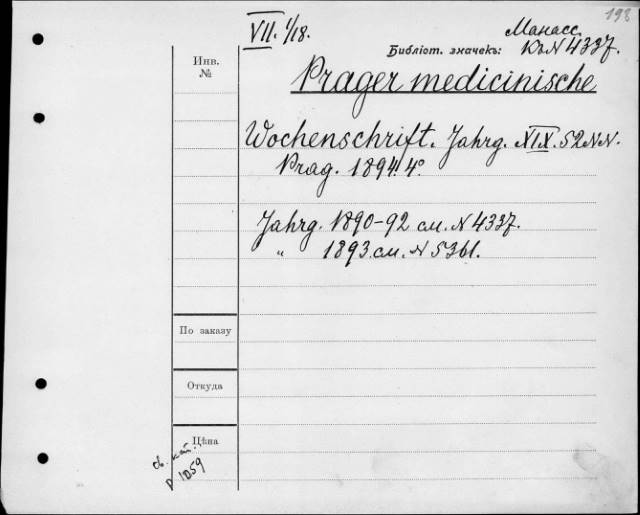 198
VII. 1/18.
Манасс.
Библіот. значекъ: Къ N 4337.
Инв.
№
Prager medicinische
Wochenschrift. Jahrg. XIX. 52 NN.
Prag. 1894. 4°.
Jahrg. 1890-92 см. N 4337.
" 1893 см. N 5361.
По заказу
Откуда
Цѣна
св. кат.
р 1059